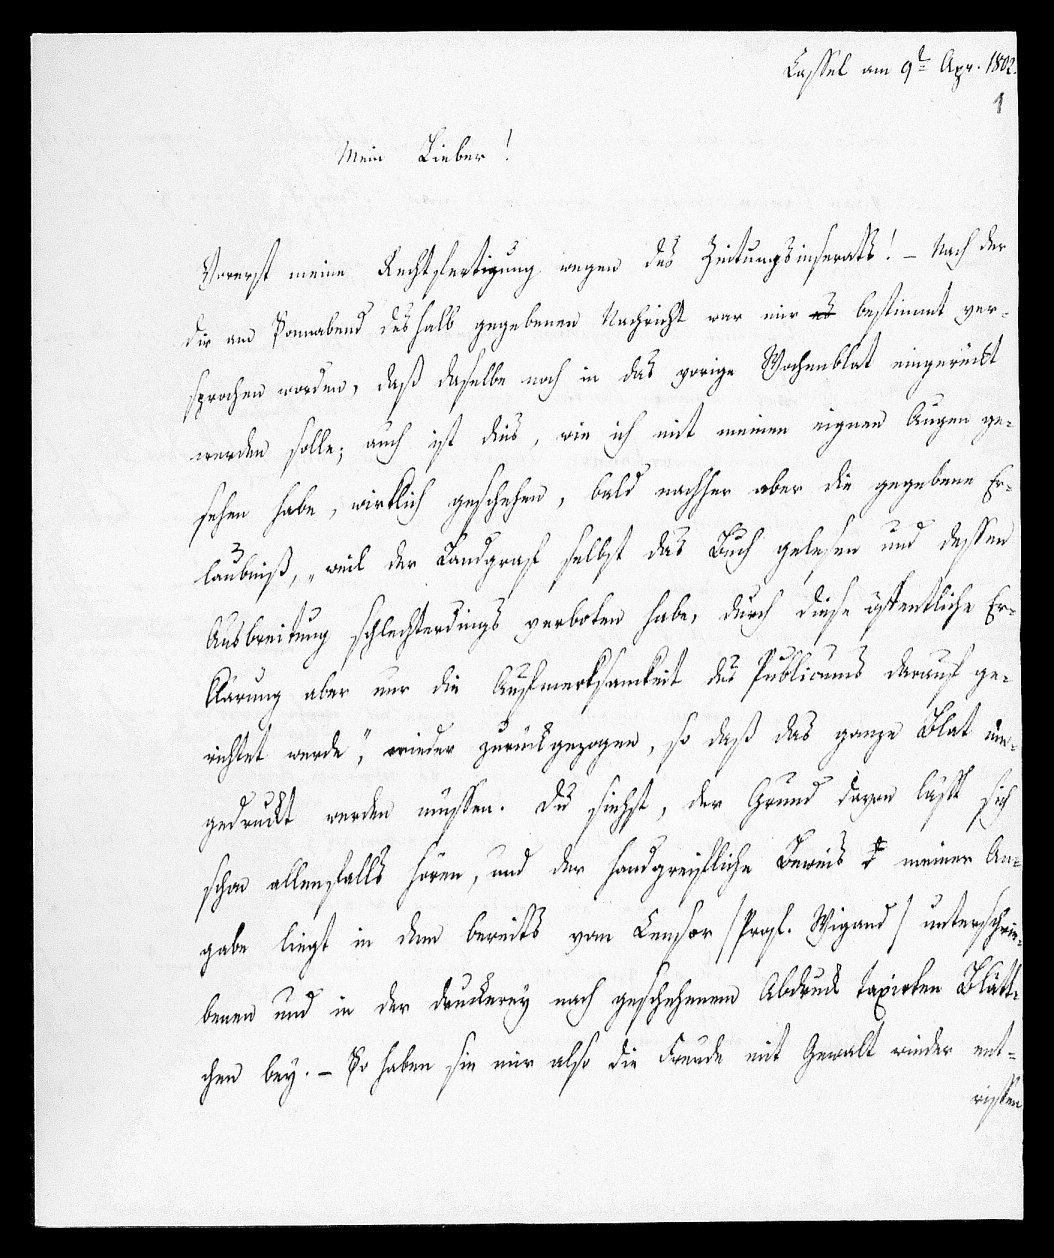 Cassel am 9t Apr. 1802.
1
Mein Lieber!
Vorerst meine Rechtfertigung wegen des Zeitungsinserats! – Nach der
dir am Sonnabend deshalb gegebenen Nachricht war mir es bestimmt ver-
sprochen worden, daß dasselbe noch in das vorige Wochenblat eingerückt
werden solle; auch ist dies, wie ich mit meinen eignen Augen ge-
sehen habe, wirklich geschehen, bald nachher aber die gegebene Er-
laubniß, „weil der Landgraf selbst das Buch gelesen und dessen
Ausbreitung schlechterdings verboten habe, durch diese öffentliche Er-
klärung aber nur die Aufmerksamkeit des Publicums darauf ge-
richtet werde“, wieder zurückgezogen, so daß das ganze Blat um-
gedruckt werden müssen. Du siehst, der Grund davon läßt sich
schon allenfalls hören, und der handgreifliche Beweis d meiner An-
gabe liegt in dem bereits vom Censor /Prof. Wigand/ unterschrie-
benen und in der Druckerey nach geschehenem Abdruck taxirten Blätt-
chen bey. – So haben sie mir also die Freude mit Gewalt wieder ent-
rissen